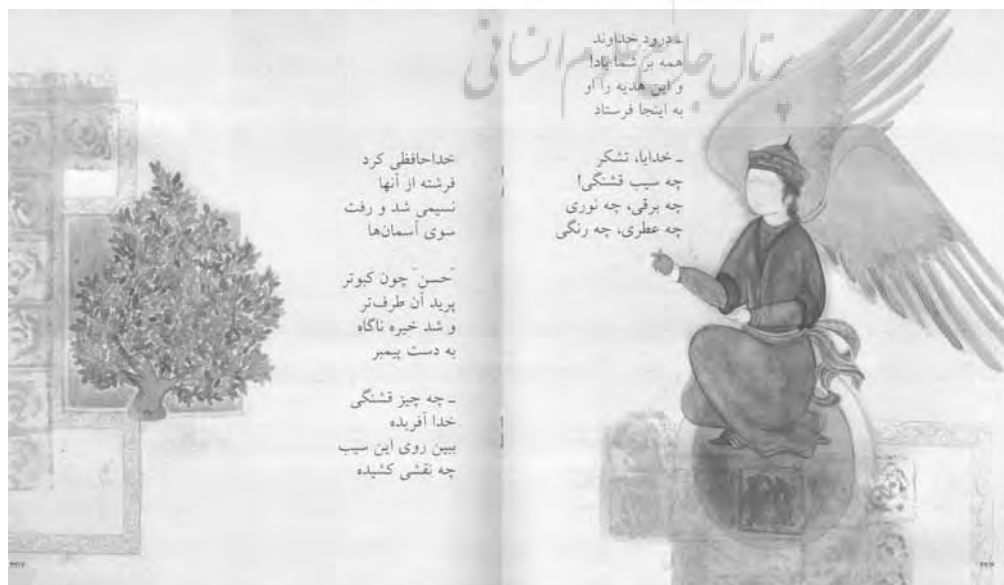 پرتال جامع علوم انسانی
ـ درود خداوند
همه بر شما باد!
و این هدیه را او
به اینجا فرستاد
ـ خدایا، تشکر
چه سیب قشنگی!
چه برقی، چه نوری
چه عطری، چه رنگی
خداحافظی کرد
فرشته از آنها
نسیمی شد و رفت
سوی آسمان‌ها
"حسن" چون کبوتر
پرید آن طرف‌تر
و شد خیره ناگاه
به دست پیمبر
ـ چه چیز قشنگی
خدا آفریده
ببین روی این سیب
چه نقشی کشیده